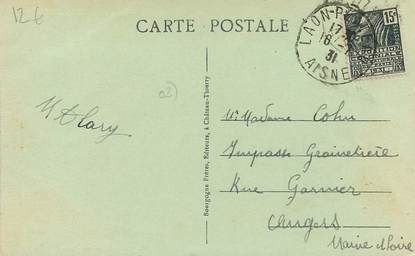 12€
CARTE POSTALE
LAON-P
17
16
31
AISNE
15c
02)
Mme Madame Cohu
Impasse Grainetière
Rue Garnier
Angers
Maine et Loire
Bourgogne Frères, Editeurs, à Château-Thierry